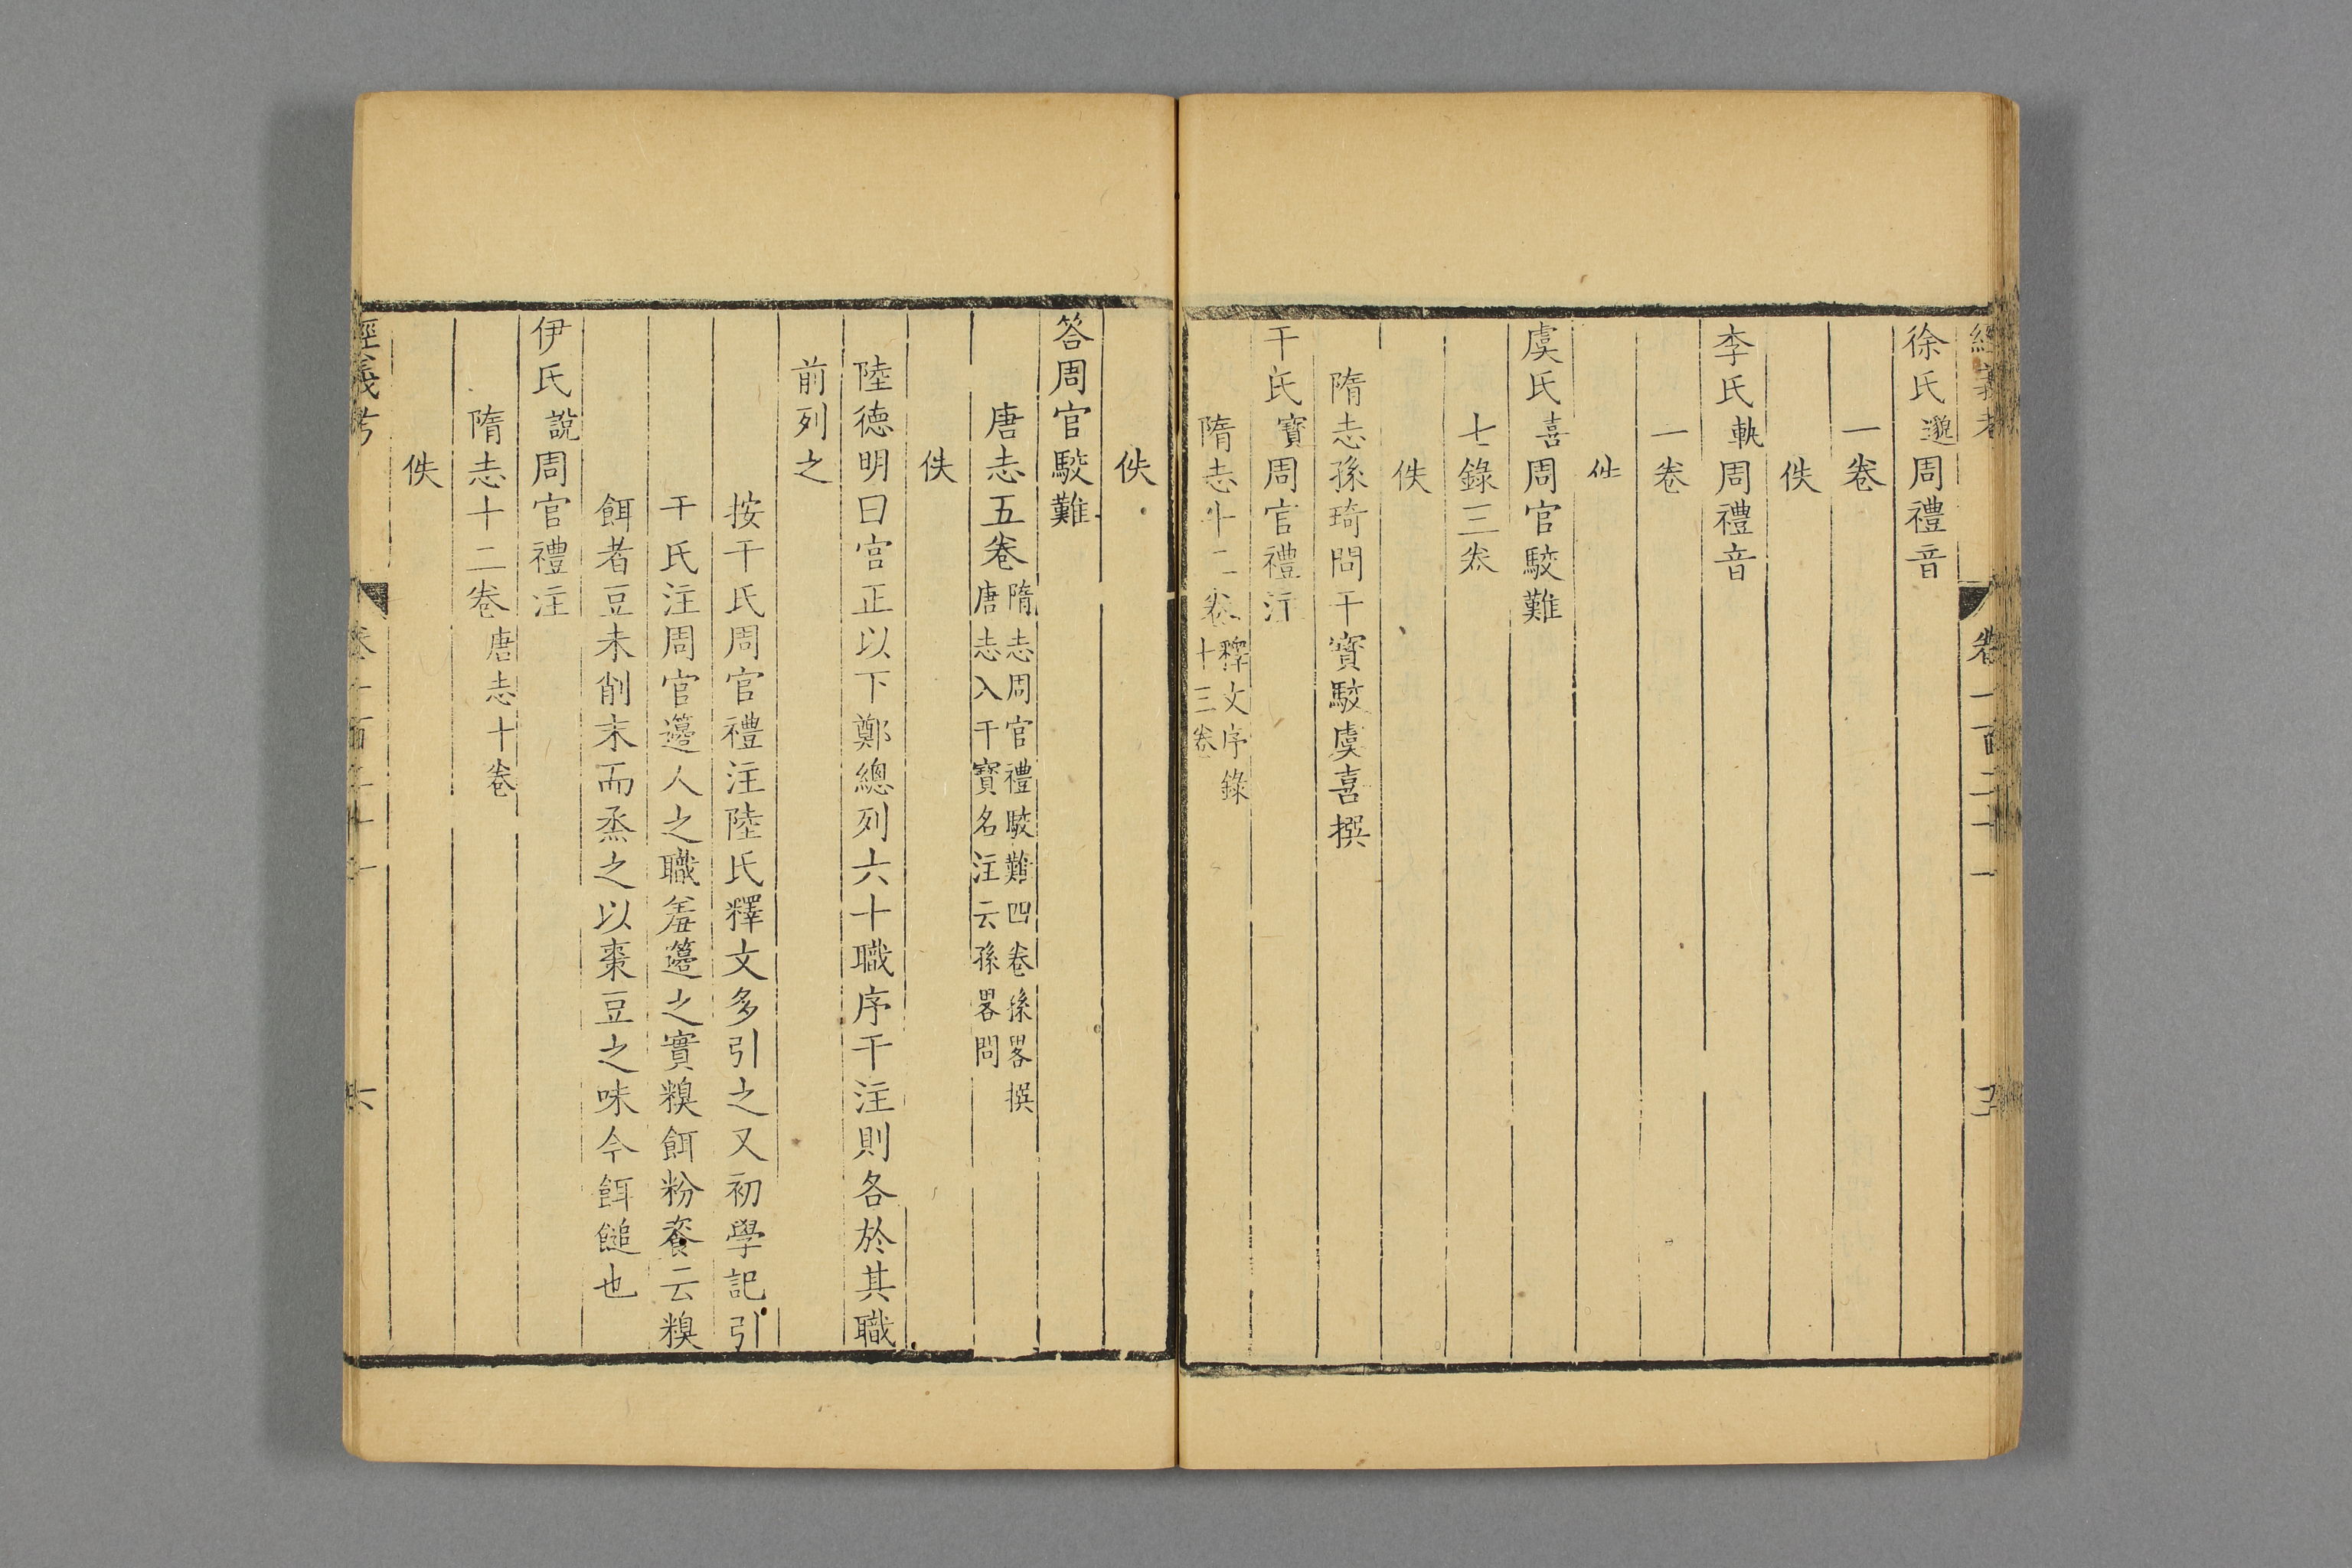 經義考 卷一百二十一 五
徐氏邈周禮音
一卷
佚
李氏軌周禮音
一卷
佚
虞氏喜周官駮難
七錄三卷
佚
隋志孫琦問干寶駮虞喜撰
干氏寶周官禮注
隋志十二卷釋文序錄十三卷
佚
答周官駮難
唐志五卷隋志周官禮駮難四卷孫畧撰唐志入干寶名注云孫畧問
佚
陸德明曰宮正以下鄭總列六十職序干注則各於其職
前列之
按干氏周官禮注陸氏釋文多引之又初學記引
干氏注周官籩人之職羞籩之實糗餌粉餈云糗
餌者豆末削末而烝之以棗豆之味今餌䭔也
伊氏說周官禮注
隋志十二卷唐志十卷
佚
經義考 卷一百二十一 六